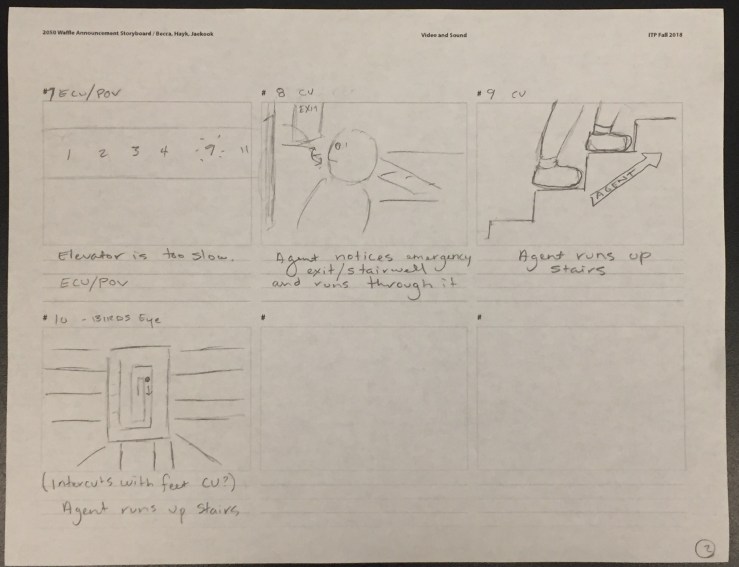 2050 Waffle Announcement Storyboard / Becca, Hayk, Jaekook
Video and Sound
ITP Fall 2018
#7 ECU/POV
# 8 CU
# 9 CU
EXIT
1 2 3 4 9 11
AGENT
Elevator is too slow.
ECU/POV
Agent notices emergency
exit/stairwell
and runs through it
Agent runs up
stairs
# 10 - BIRDS Eye
#
#
(Intercuts with feet CU?)
Agent runs up stairs
2